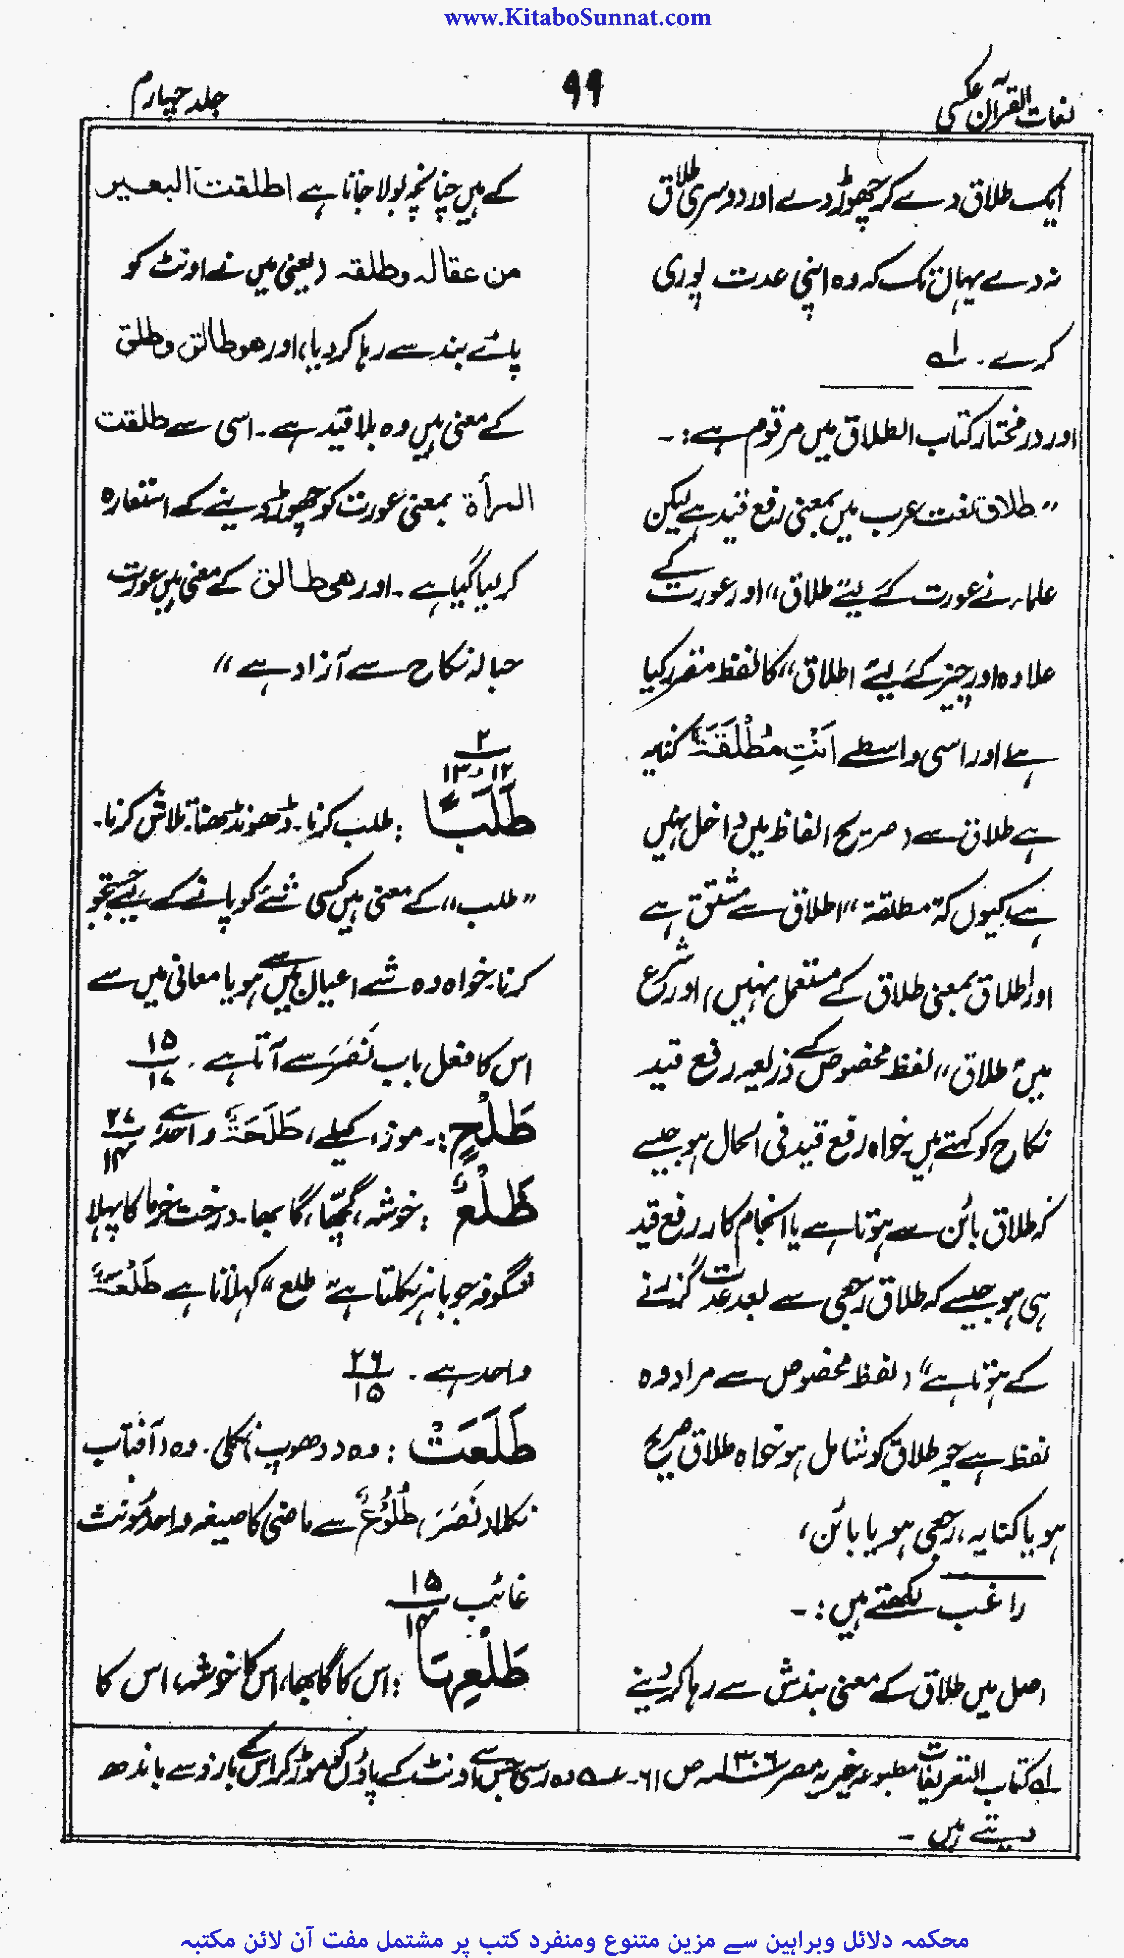 www.KitaboSunnat.com
لغات القرآن عکسی
۹۹
جلد چہارم
ایک طلاق دے کر چھوڑ دے اور دوسری طلاق
نہ دے یہاں تک کہ وہ اپنی عدت پوری
کرے۔ لہ
اور در مختار کتاب الطلاق میں مرقوم ہے:۔
"طلاق لغت عرب میں بمعنی رفع قید ہے لیکن
علماء نے عورت کے لئے طلاق" اور عورت کے
علاوہ اور چیز کے لئے اطلاق" کا لفظ مقرر کیا
ہے اور اسی واسطے اَنْتِ مُطْلَقَةٌ کنایہ
ہے طلاق سے (صریح الفاظ میں داخل نہیں
ہے کیوں کہ "مطلقة" اطلاق سے مشتق ہے
اور اطلاق بمعنی طلاق کے مستعمل نہیں) اور شرع
میں "طلاق" لفظ مخصوص کے ذریعہ رفع قید
نکاح کو کہتے ہیں خواہ رفع قید فی الحال ہو جیسے
کہ طلاق بائن سے ہوتا ہے یا انجام کار رفع قید
ہی ہو جیسے کہ طلاق رجعی سے بعد عدت گزرنے
کے ہوتا ہے" (لفظ مخصوص سے مراد وہ
لفظ ہے جو طلاق کو شامل ہو خواہ طلاق صریح
ہو یا کنایہ، رجعی ہو یا بائن،
راغب لکھتے ہیں:۔
اصل میں طلاق کے معنی بندش سے رہا کر دینے
کے ہیں چنانچہ بولا جاتا ہے اطلقت البعیر
من عقالہ وطلقہ (یعنی میں نے اونٹ کو
پائے بند سے رہا کر دیا) اور ھو طالق وطلق
کے معنی ہیں وہ بلا قید ہے۔ اسی سے طلقت
المرأة بمعنی عورت کو چھوڑ دینے کے استعارہ
کر لیا گیا ہے۔ اور ھی طالق کے معنی ہیں عورت
حبالہ نکاح سے آزاد ہے"
۲
۱۳،۱۲
طَلَبًا: طلب کرنا۔ ڈھونڈھنا، تلاش کرنا۔
"طلب" کے معنی ہیں کسی شئے کو پانے کے لیے جستجو
کرنا، خواہ وہ شے اعیان میں سے ہو یا معانی میں سے
اس کا فعل باب نَصَرَ سے آتا ہے۔ ۱۵/۱۷
طَلْحٍ:۔ موز، کیلے، طَلْحَةٌ واحد ہے ۲۷/۱۴
طَلْعٌ: خوشہ، گچھا، گابھا۔ درخت خرما کا پہلا
شگوفہ جو باہر نکلتا ہے "طلع" کہلاتا ہے طَلْعَةٌ
واحد ہے۔ ۲۶/۱۵
طَلَعَتْ: وہ (دھوپ) نکلی۔ وہ (آفتاب
نکلا (نَصَرَ) طُلُوْعٌ سے ماضی کا صیغہ واحد مؤنث
غائب ۱۵/۱۴
طَلْعِهَا: اس کا گابھا، اس کا خوشہ، اس کا
لہ کتاب التعریفات مطبوعہ خیریہ مصر ۱۳۰۶ ص ۶۱۔ عہ وہ رسی جس سے اونٹ کے پاؤں کو موڑ کر اس کے بازو سے باندھ
دیتے ہیں۔
محکمہ دلائل وبراہین سے مزین متنوع ومنفرد کتب پر مشتمل مفت آن لائن مکتبہ